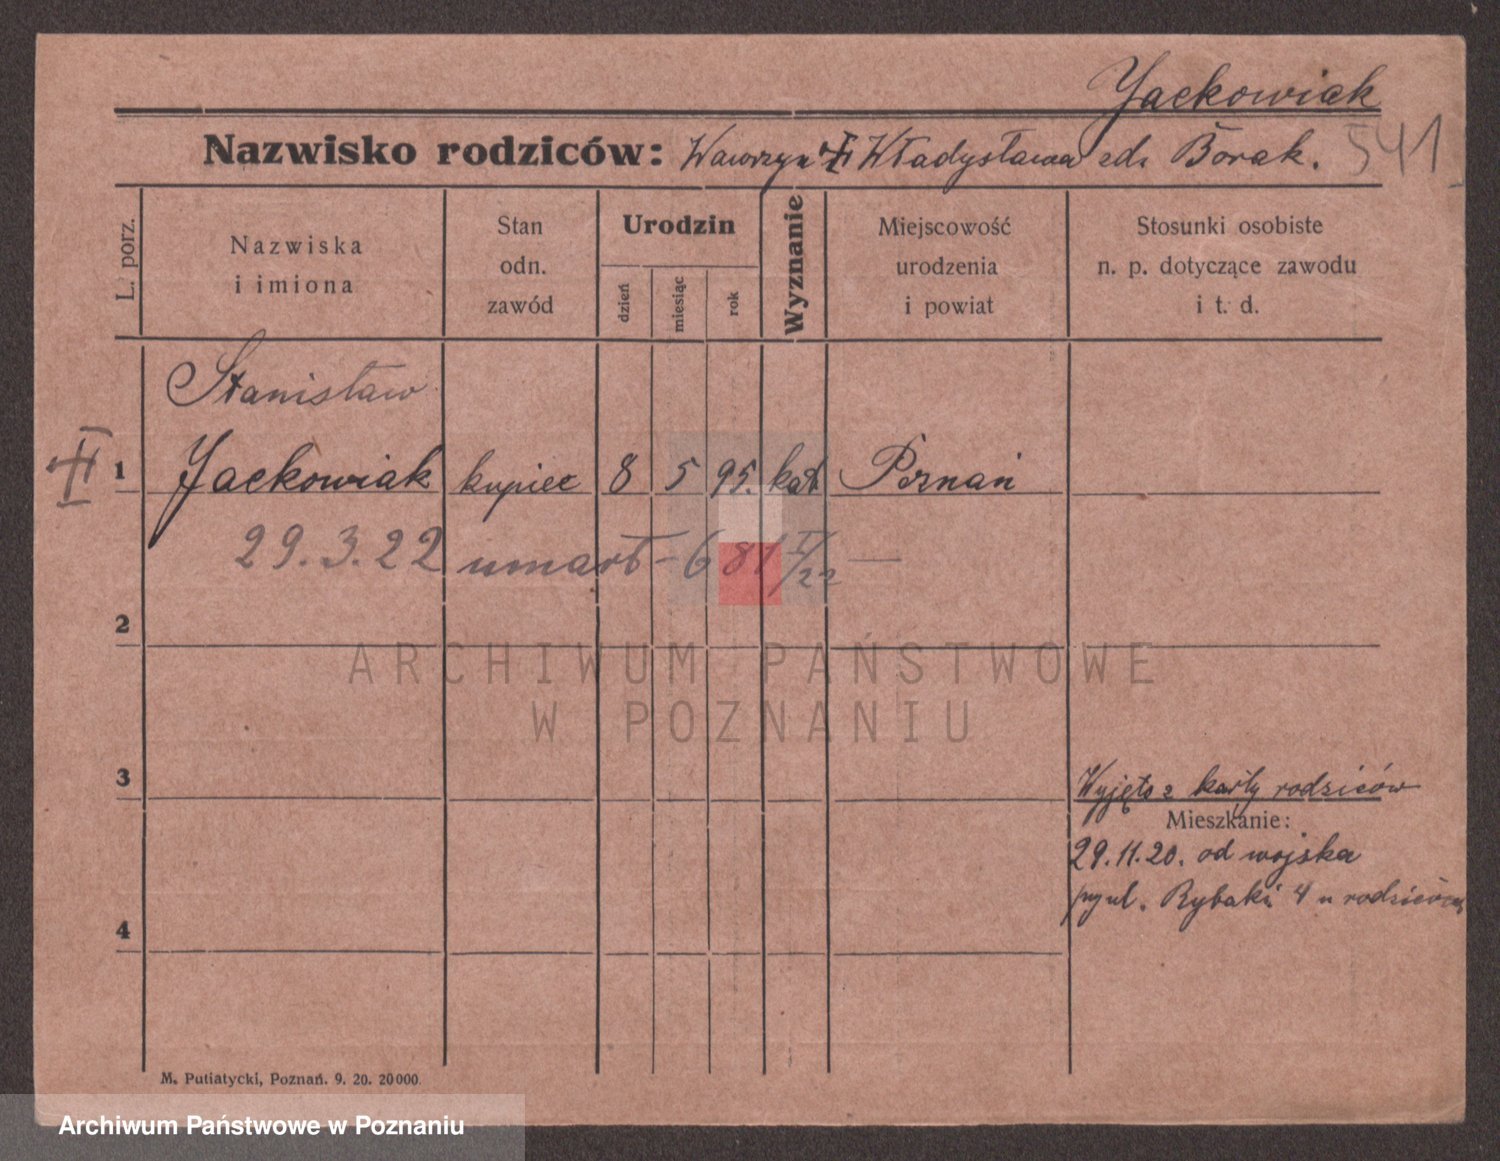 Jackowiak
Nazwisko rodziców: Wawrzyn Władysława zd. Borak. 541
L. porz.
Nazwiska
i imiona
Stan
odn.
zawód
Urodzin
dzień
miesiąc
rok
Wyznanie
Miejscowość
urodzenia
i powiat
Stosunki osobiste
n. p. dotyczące zawodu
i t. d.
Stanisław
1 Jackowiak kupiec 8 5 95. kat Poznań
29.3.22 umarł - 681 I/22 —
2
ARCHIWUM PAŃSTWOWE
W POZNANIU
3
Wyjęto z karty rodziców
Mieszkanie:
29.11.20. od wojska
ul. Rybaki 4 u rodziców
4
M. Putiatycki, Poznań. 9. 20. 20000.
Archiwum Państwowe w Poznaniu